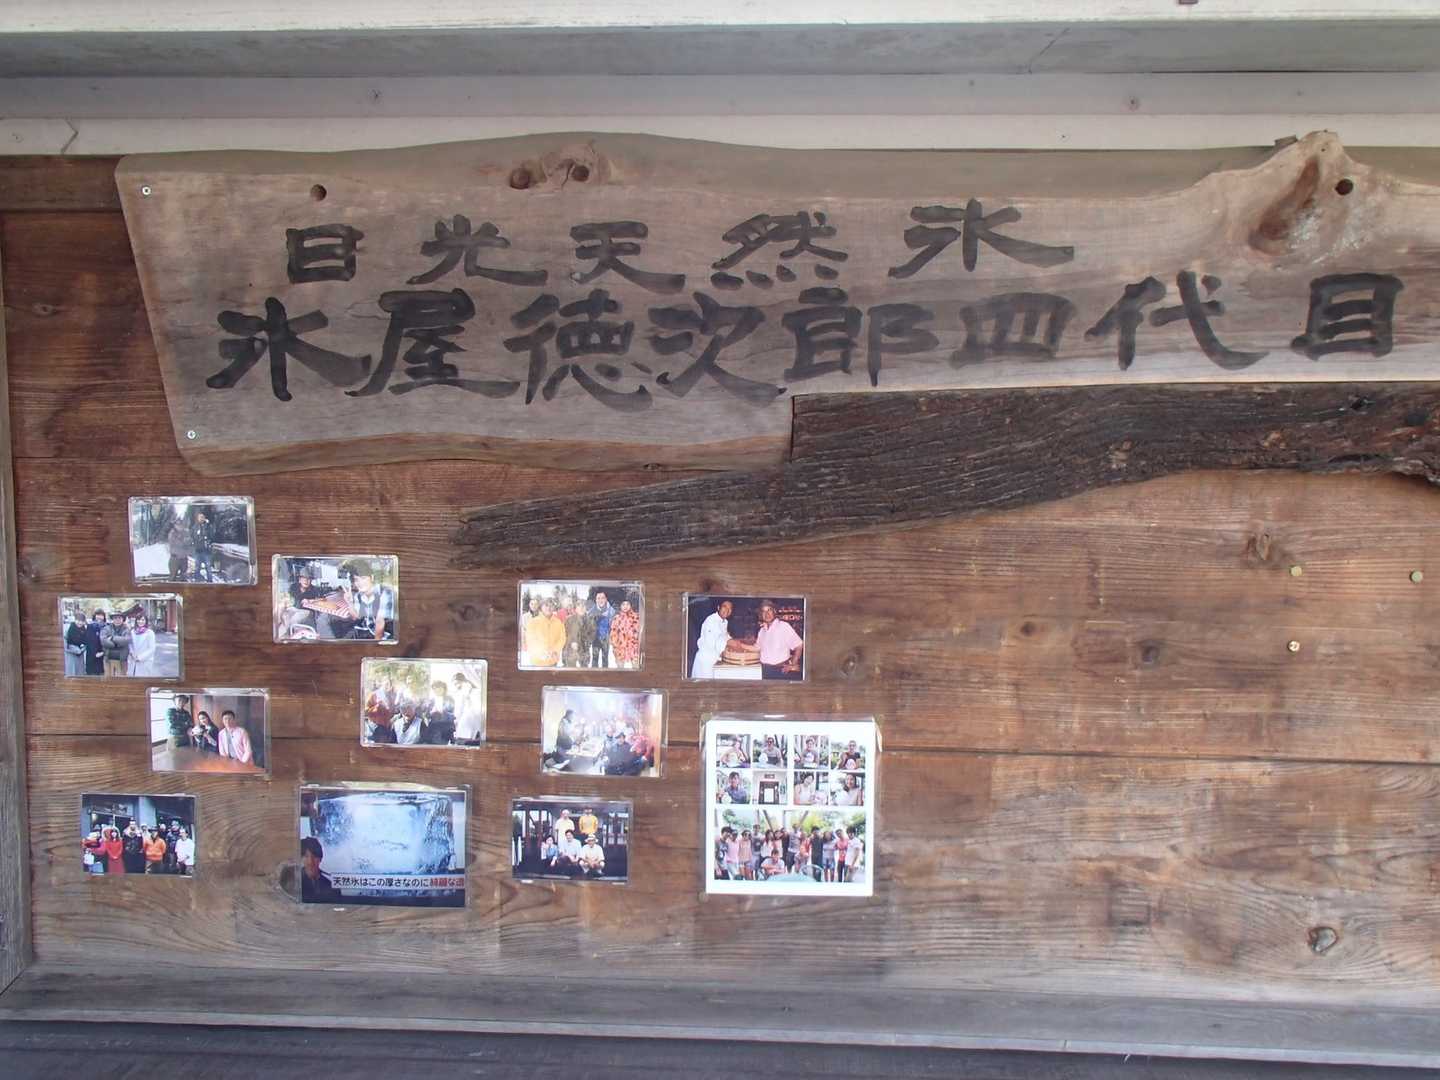 日光天然氷
氷屋徳次郎四代目
天然氷はこの厚さなのに綺麗な透